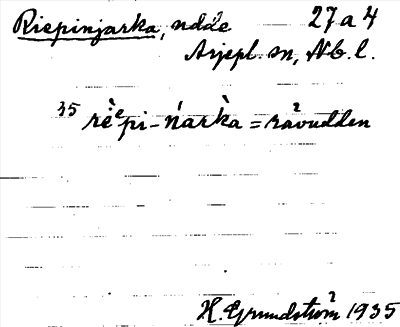 Riepinjarka, udde 27 a 4
Arjepl. sn, Nb. l.
35 rè̇ᵉpi-ńàrkà = rävudden
H. Grundström 1935